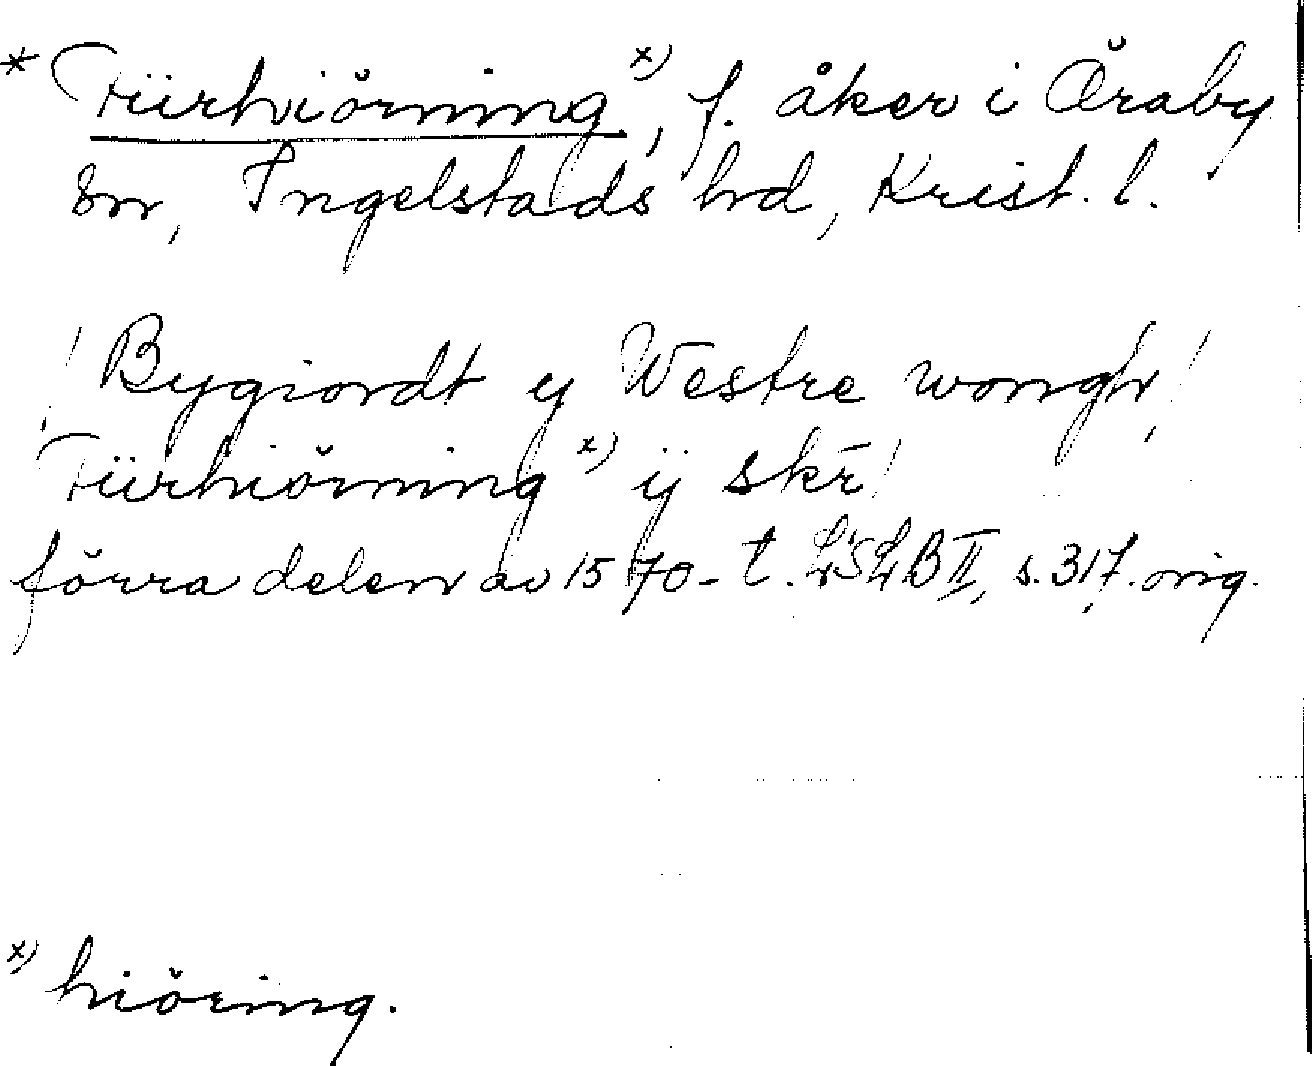 * Fiirhiörning x), f. åker i Öraby
sn, Ingelstads hrd, Krist. l.
! Bygiordt y Westre wongh, !
Fiirhiörning x) ÿ skr̄ !
förra delen av 1570-t. LSLB II, s. 317. orig.
x) hiöring.